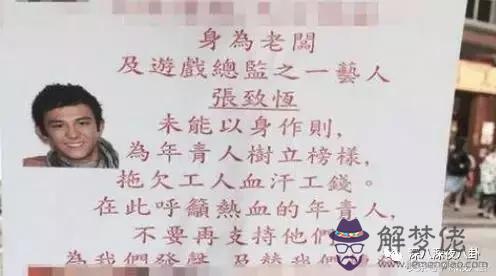 身為老闆
及遊戲總監之一藝人
張致恆
未能以身作則,
為年青人樹立榜樣,
拖欠工人血汗工錢。
在此呼籲熱血的年青人,
不要再支持他們
為我們發聲 及替我們
深八深夜八卦
解梦佬
jiemenglao.com